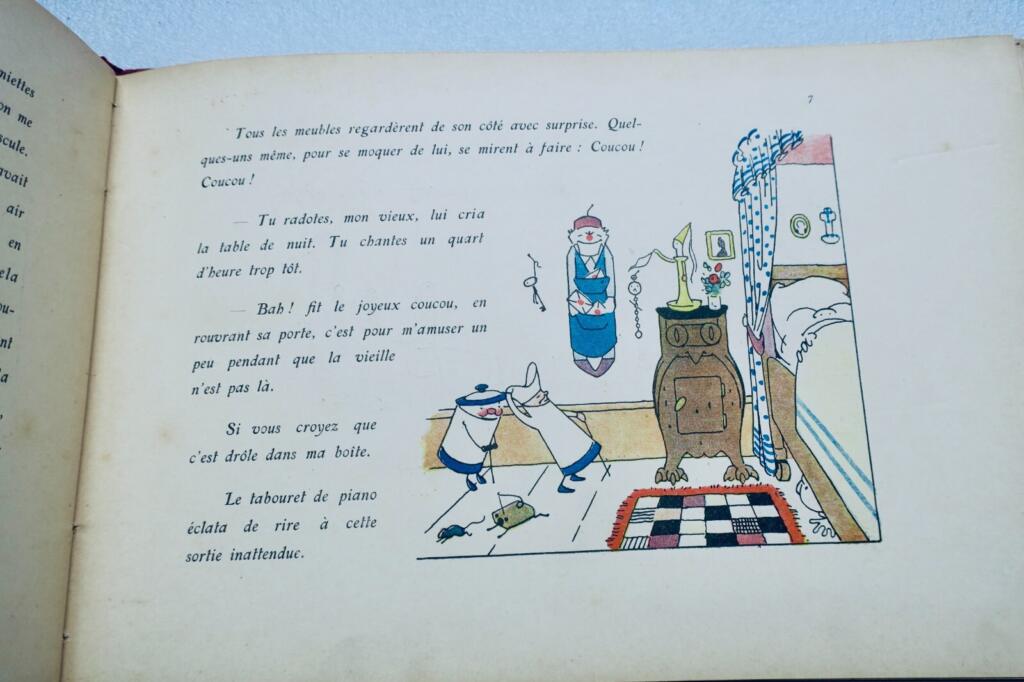 niettes
on me
scule.
avait
air
en
ela
ou-
nt
la
7
Tous les meubles regardèrent de son côté avec surprise. Quel-
ques-uns même, pour se moquer de lui, se mirent à faire : Coucou !
Coucou !
— Tu radotes, mon vieux, lui cria
la table de nuit. Tu chantes un quart
d'heure trop tôt.
— Bah ! fit le joyeux coucou, en
rouvrant sa porte, c'est pour m'amuser un
peu pendant que la vieille
n'est pas là.
Si vous croyez que
c'est drôle dans ma boite.
Le tabouret de piano
éclata de rire à cette
sortie inattendue.